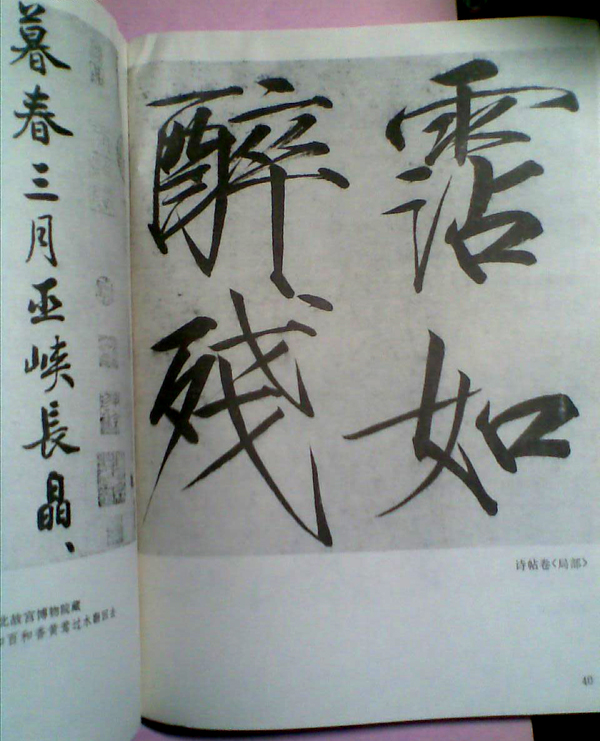 暮春三月巫峽長晶、
北故宫博物院藏
百和香黄莺过水翻回去
霑如
醉殘
诗帖卷〈局部〉
40